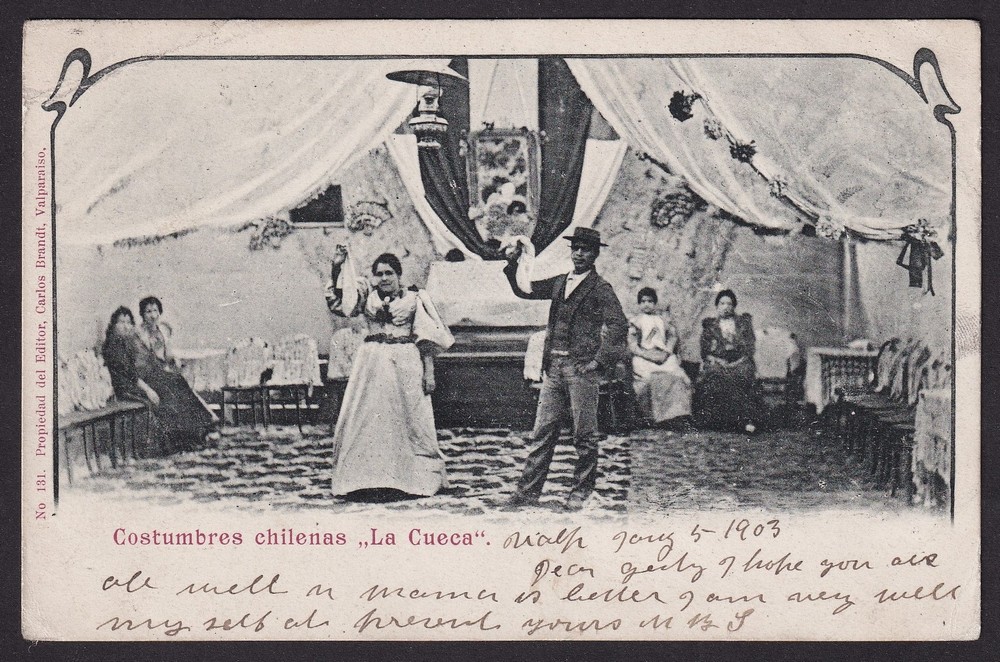 No 131. Propiedad del Editor, Carlos Brandt, Valparaiso.
Costumbres chilenas „La Cueca“.
Valp Jany 5-1903
Dear I hope you are
all well n mama is better I am very well
my self at present yours M B S